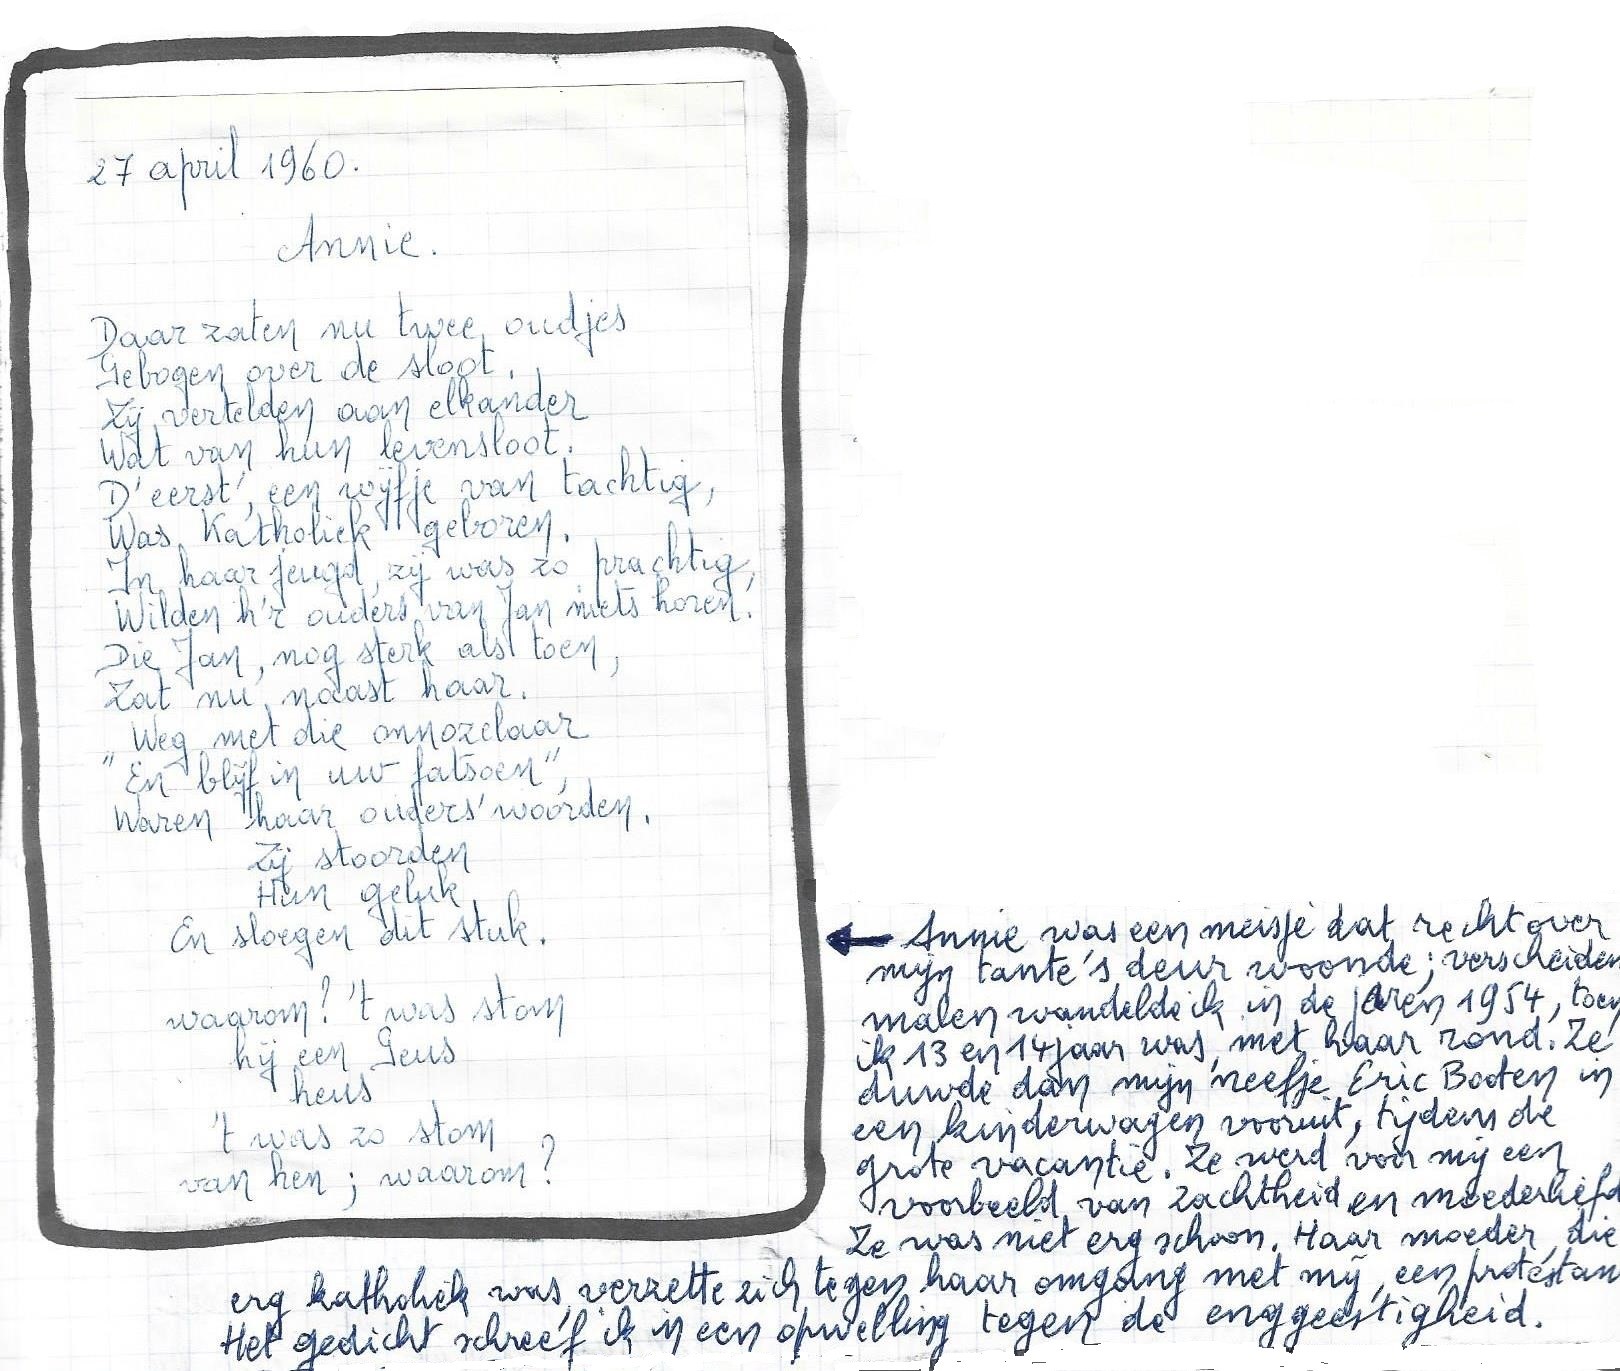 27 april 1960.
Annie.
Daar zaten nu twee oudjes
Gebogen over de sloot.
Zij vertelden aan elkander
Wat van hun levensloot.
D'eerst', een wijfje van tachtig,
Was Katholiek geboren.
In haar jeugd, zij was zo prachtig,
Wilden h'r ouders van Jan niets horen.
Die Jan, nog sterk als toen,
Zat nu naast haar.
"Weg met die onnozelaar
"En blijf in uw fatsoen",
Waren haar ouders' woorden.
Zij stoorden
Hun geluk
En sloegen dit stuk.
waarom? 't was stom
hij een Geus
heus
't was zo stom
van hen; waarom?
Annie was een meisje dat recht over
mijn tante's deur woonde; verscheiden
malen wandelde ik in de jaren 1954, toen
ik 13 en 14 jaar was, met haar rond. Ze
duwde dan mijn neefje Eric Booten in
een kinderwagen vooruit, tijdens de
grote vacantie. Ze werd voor mij een
voorbeeld van zachtheid en moederliefd
Ze was niet erg schoon. Haar moeder, die
erg katholiek was, verzette zich tegen haar omgang met mij, een protestan
Het gedicht schreef ik in een opwelling tegen de enggeestigheid.